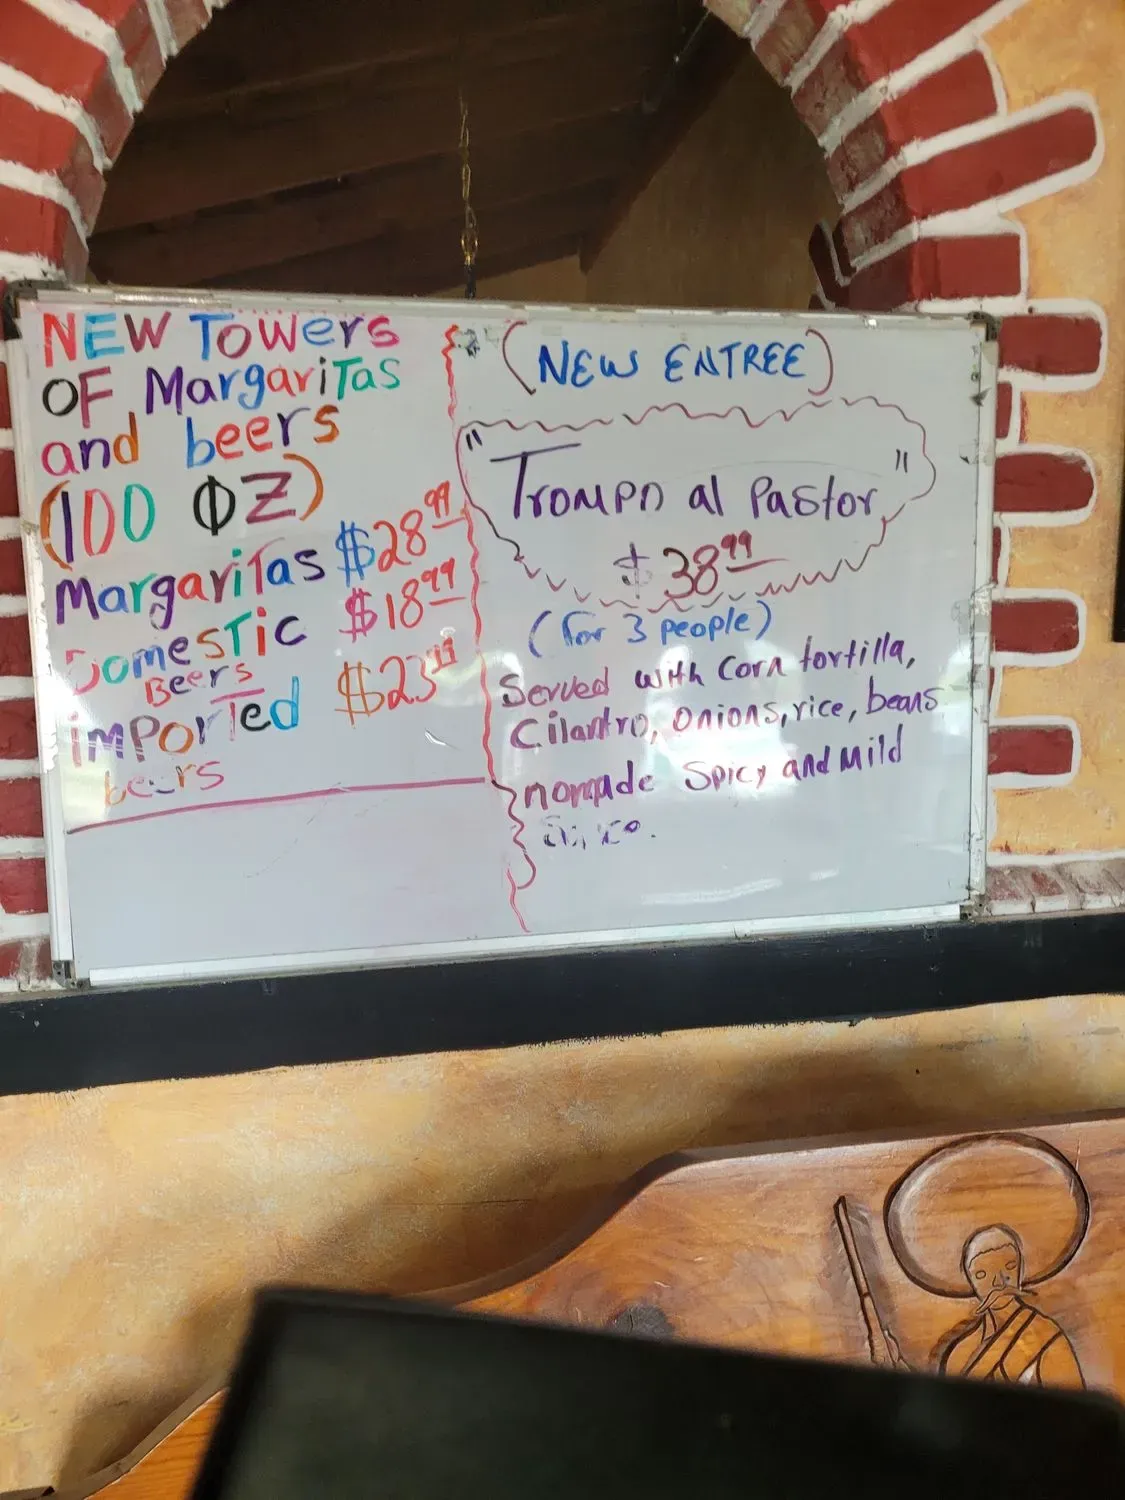 NEW TOWers
OF MargariTas
and beers
(100 OZ)
MargariTas $28.99
DomesTic $18.99
Beers
imporTed $23.99
beers
(NEW ENTREE)
"Trompo al Pastor"
$38.99
(for 3 people)
Served with corn tortilla,
Cilantro, onions, rice, beans
nomade Spicy and Mild